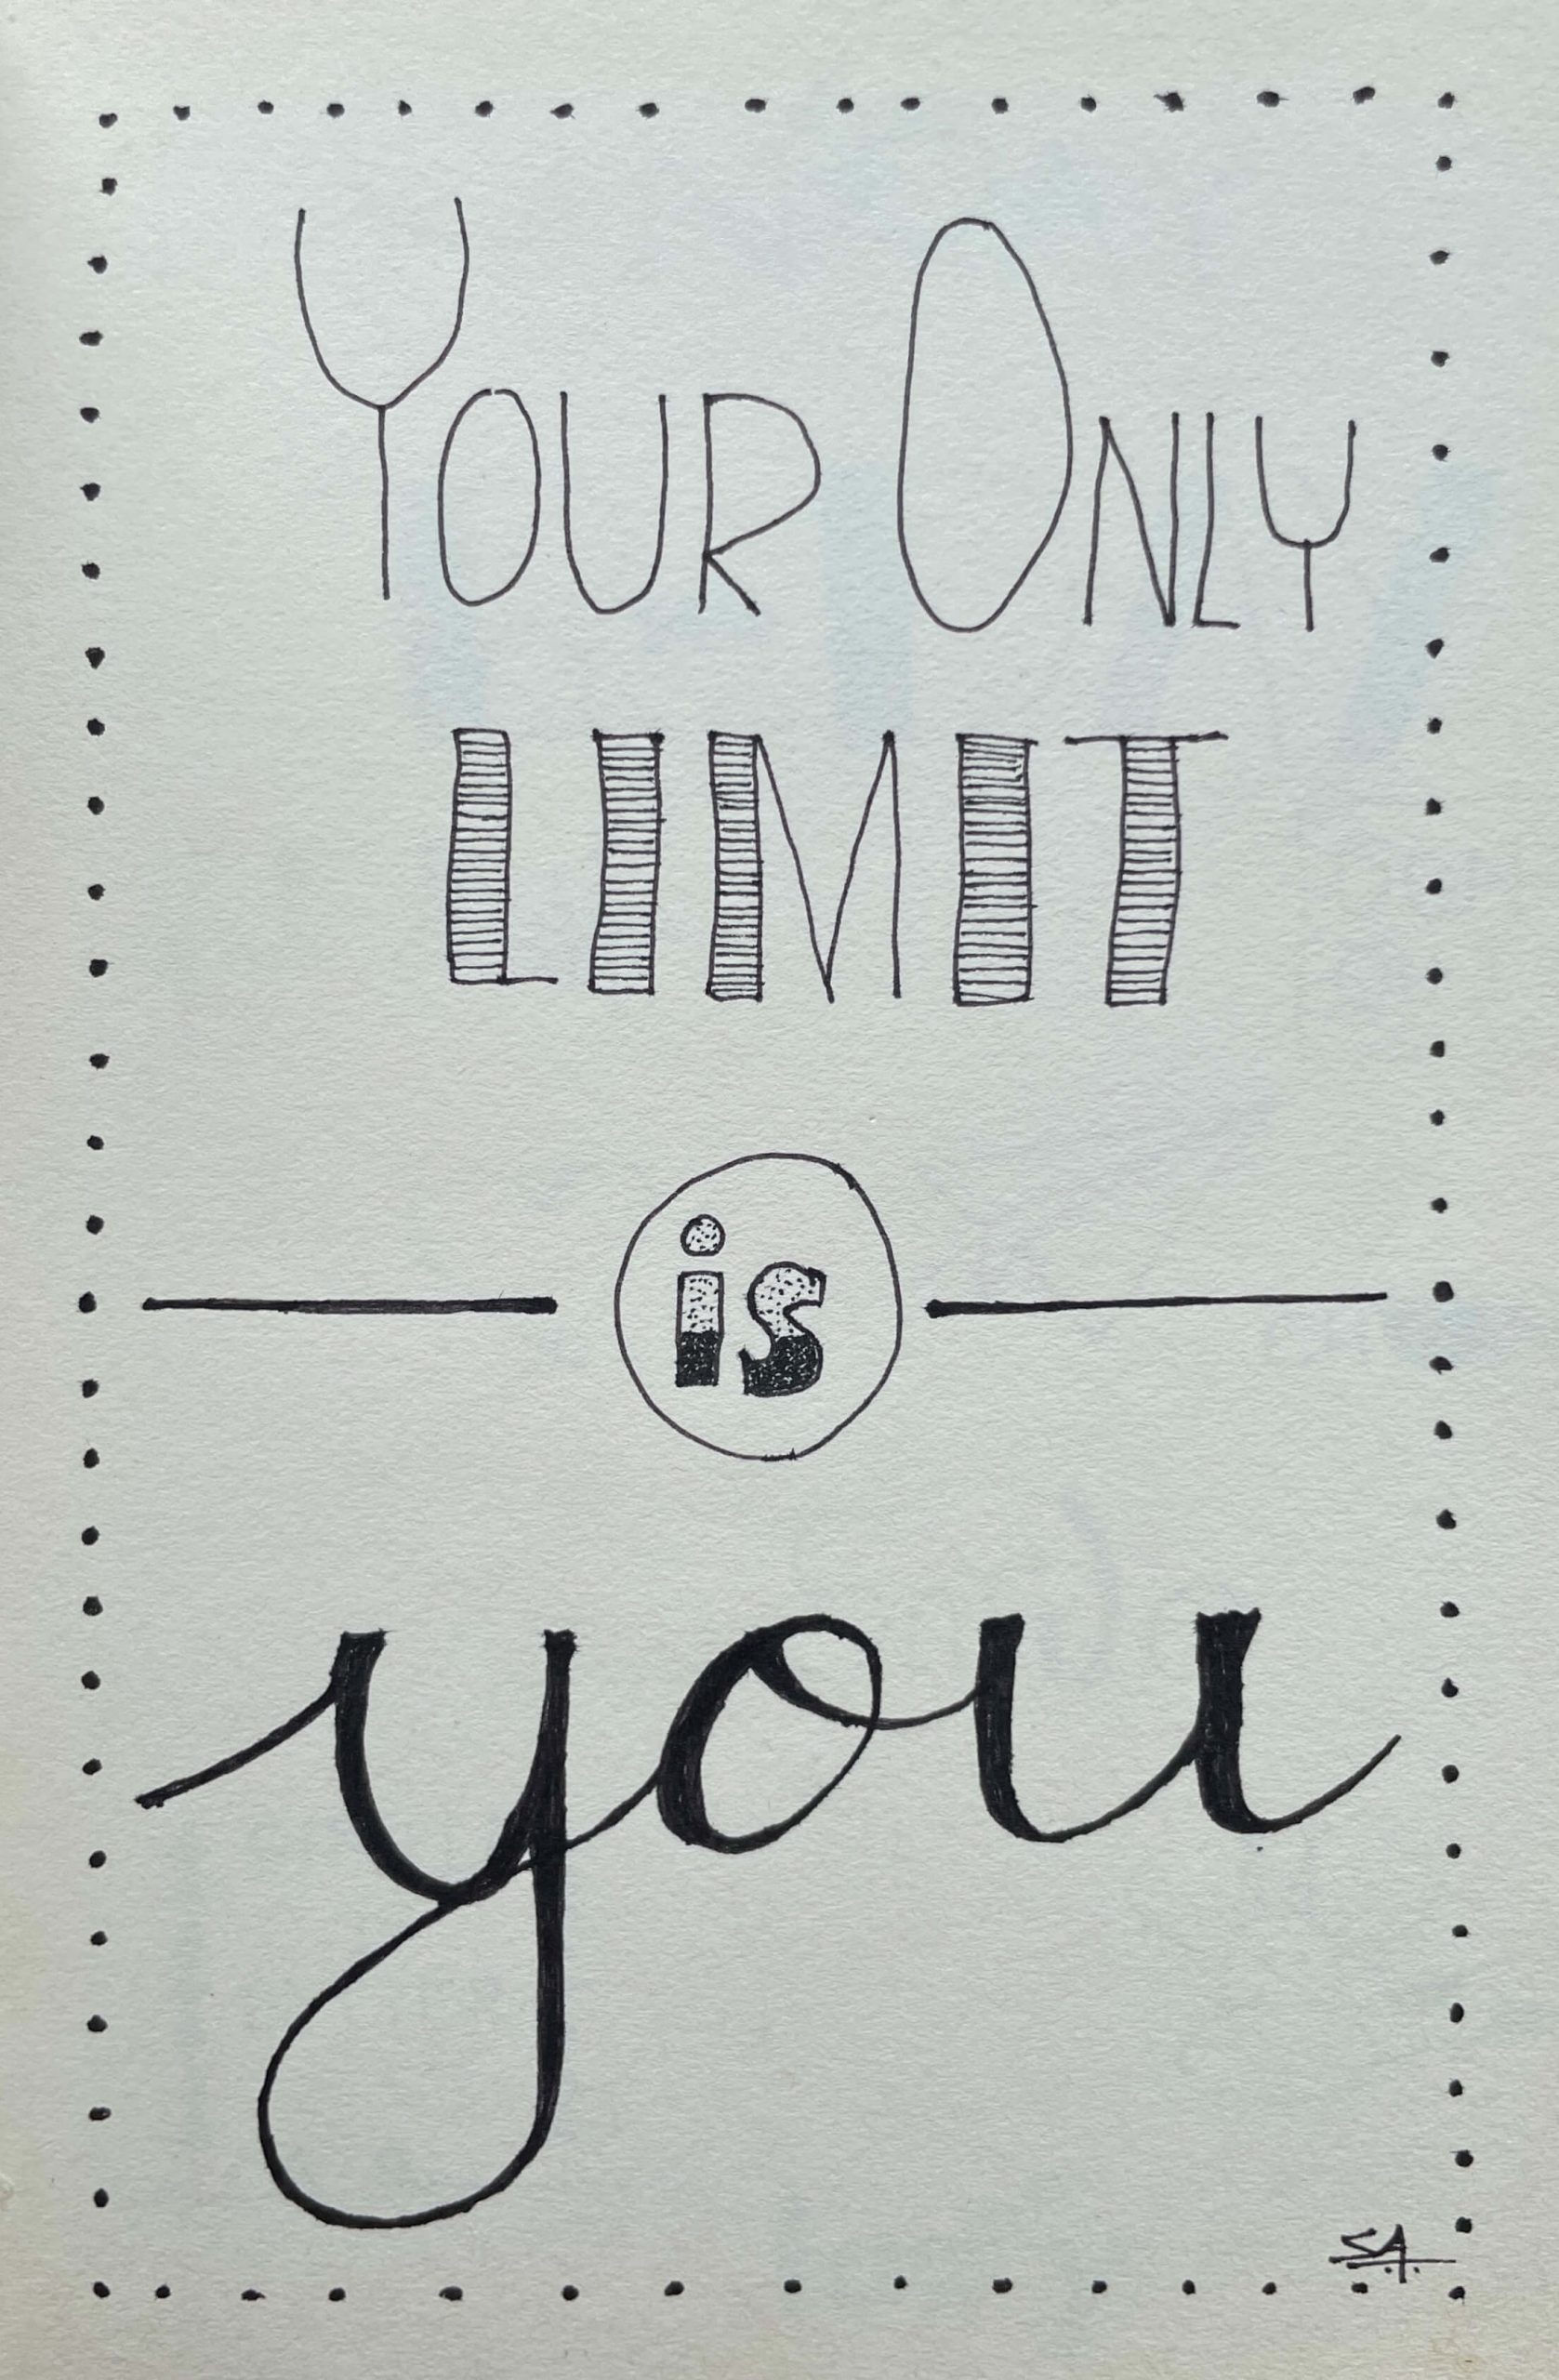 Your Only
LIMIT
is
you
SA